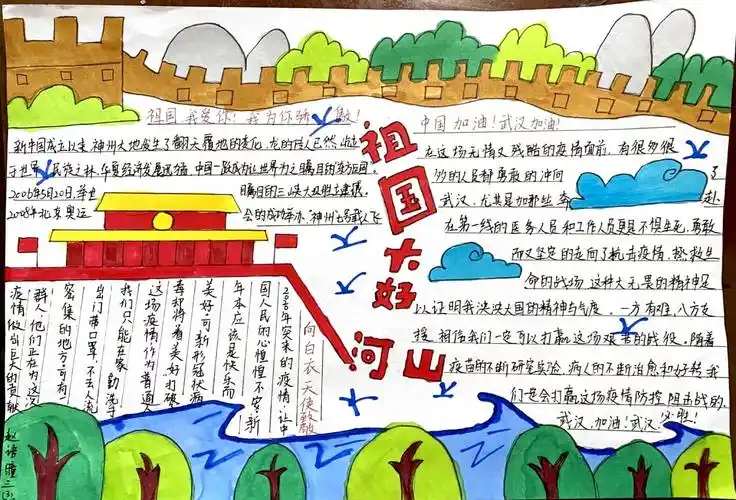 祖国我爱你!我为你骄傲!
新中国成立以来神州大地发生了翻天覆地的变化,龙的传人已然屹立
于世界民族之林,华夏经济发展迅猛,中国一跃成为让世界为之瞩目的东方巨国。
2006年5月20日,举世
瞩目的三峡大坝胜利建成
2008年北京奥运
会的成功举办,神州七号载人飞
祖国大好
河山
中国加油!武汉加油!
在这场无情又残酷的疫情面前,有很多很
多的人民都勇敢的冲向了
武汉,尤其是如那些奔赴
在第一线的医务人员和工作人员更是不惧生死,勇敢
而又坚定的走向了抗击疫情,拯救生
命的战场,这种大无畏的精神足
以证明我泱泱大国的精神与气度,一方有难,八方支
援,相信我们一定可以打赢这场艰苦的战役。随着
疫苗的不断研究实验,病人的不断治愈和好转,我
们一定会打赢这场疫情防控阻击战的。
武汉,加油!武汉,必胜!
向白衣天使致敬
2020年突来的疫情,让中
国人民的心惶惶不安,新
年本应该是快乐而
美好,可新形冠状病
毒却将着美好打破
这场疫情作为普通人
我们只能在家勤洗手
出门带口罩,不去人流
密集的地方,可有一
群人,他们正在为这次
疫情做出巨大的贡献
三(3)